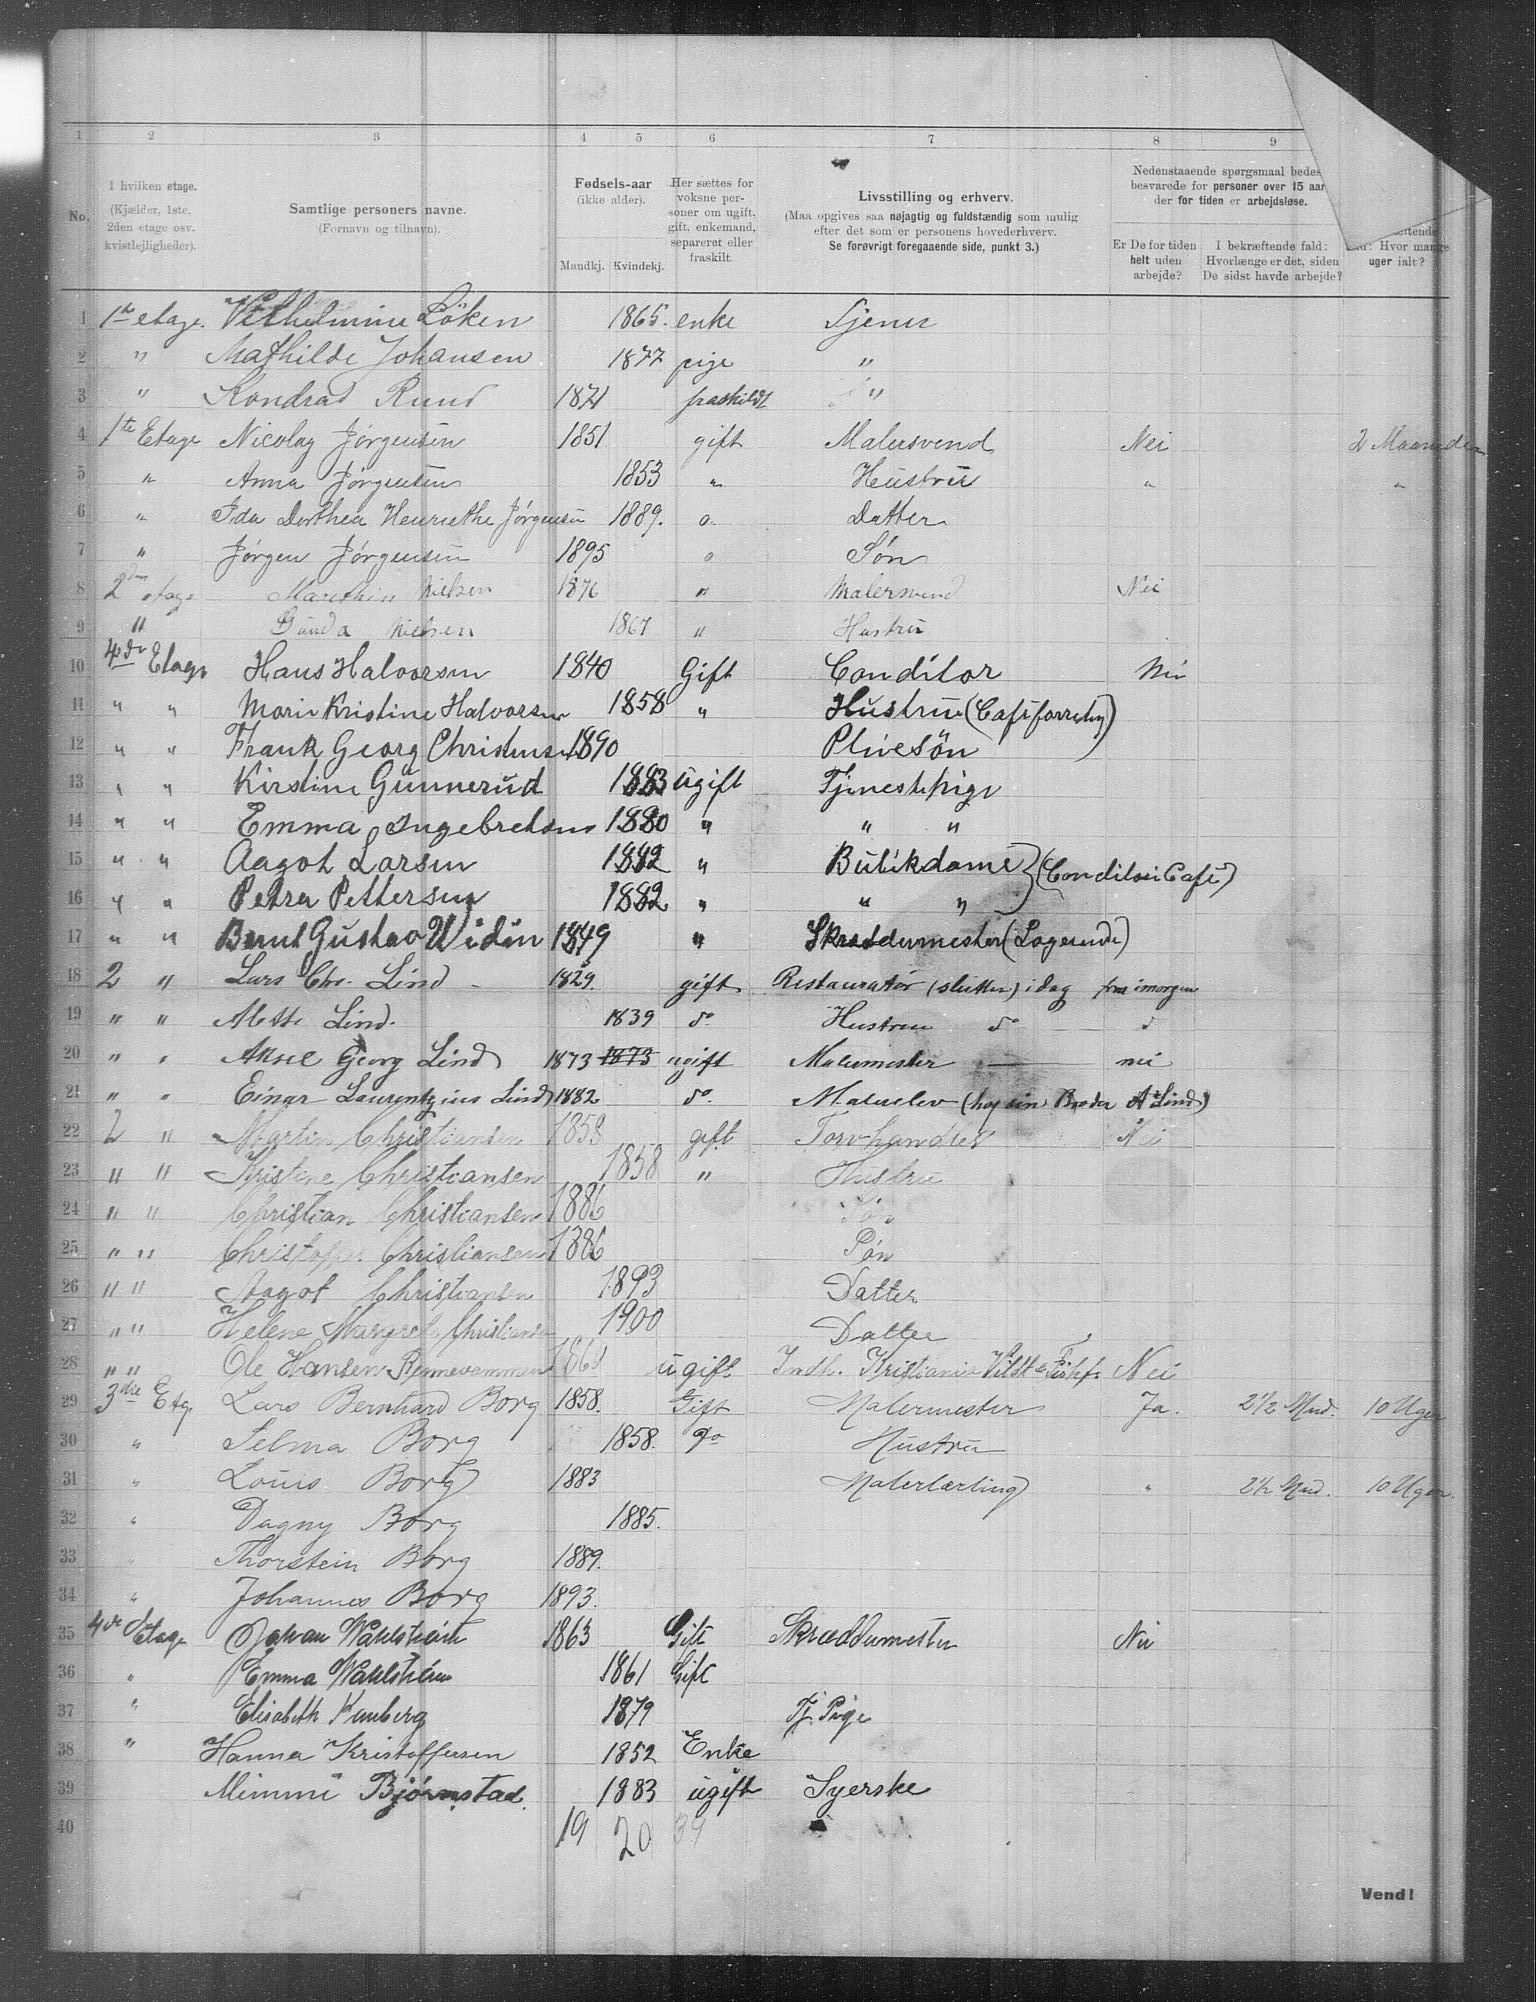 1 2 3 4 5 6 7 8 9
No.
I hvilken etage. (Kjælder, 1ste, 2den etage osv. kvistlejligheder).
Samtlige personers navne. (Fornavn og tilnavn).
Fødsels-aar (ikke alder). Mandkj. Kvindekj.
Her sættes for voksne personer om ugift, gift, enkemand, separeret eller fraskilt.
Livsstilling og erhverv. (Maa opgives saa nøjagtig og fuldstændig som mulig efter det som er personens hovederhverv. Se forøvrigt foregaaende side, punkt 3.)
Nedenstaaende spørgsmaal bedes besvarede for personer over 15 aar der for tiden er arbejdsløse.
Er De for tiden helt uden arbejde?
I bekræftende fald: Hvorlænge er det, siden De sidst havde arbejde?
Hvor mange uger ialt?
1 1ste etage. Vilhelmine Löken 1865. enke Tjener
2 " Mathilde Johansen 1877 pige "
3 " Kondrad Ruud 1871 fraskildt "
4 1te Etage Nicolay Jørgensen 1851 gift Malersvend Nei 2 Maaneder
5 " Anna Jørgensen 1853 " Hustru " "
6 " Ida Dorthea Henriethe Jørgensen 1889. o. Datter
7 " Jørgen Jørgensen 1895 o Søn
8 2den etage Nielsen 1876 " Malersvend Nei
9 " Gunda Nielsen 1867 " Hustru
10 4de Etage Hans Halvorsen 1840 Gift Conditor Nei
11 " " Marie Kristine Halvorsen 1858 " Hustru (Caféforretng)
12 " " Frank Georg Christensen 1890 Plivesön
13 " " Kirstine Gunnerud 1883 ugift Tjenestepige
14 " " Emma Ingebretsen 1880 " " "
15 " " Aagot Larsen 1882 " Butikdame } (Conditori Café)
16 " " Petra Pettersen 1882 " " "
17 " " Bernt Gustav Widin 1849 " Skræddermester (Logerende)
18 2 " Lars Chr. Lind 1829. gift Restauratör (slutter) i dag fra imorgen
19 " " Alette Lind. 1839 do Hustru do d
20 " " Aksel Georg Lind 1873 1873 ugift Malermester — nei
21 " " Einar Laurentzius Lind 1882 do Malerelev (hos sin Broder A Lind)
22 2 " Martin Christiansen 1858 gift Torvhandler Nei
23 " " Kristine Christiansen 1858 " Hustru
24 " " Christian Christiansen 1886 Søn
25 " " Christoffer Christiansen 1886 Søn
26 " " Aagot Christiansen 1893 Datter
27 " " Helene Margrete Christiansen 1900 Datter
28 " " Ole Hansen ugift Indh. Kristiania Vildt & Fiskf. Nei
29 3die Etg. Lars Bernhard Borg 1858. Gift Malermester Ja. 2½ Mnd. 10 Uger
30 " Selma Borg 1858. do Hustru
31 " Louis Borg 1883 Malerlærling " 2½ Mnd. 10 Uger.
32 " Dagny Borg 1885.
33 " Thorstein Borg 1889.
34 " Johannes Borg 1893.
35 4de Etage Johan Wahlström 1863 Gift Skræddermester Nei
36 " Emma Wahlström 1861 Gift
37 " Elisabeth 1879 Tj. Pige
38 " Hanna Kristoffersen 1852 Enke
39 Mimmi Bjørnstad. 1883 ugift Syerske
40 19 20 39
Vend!